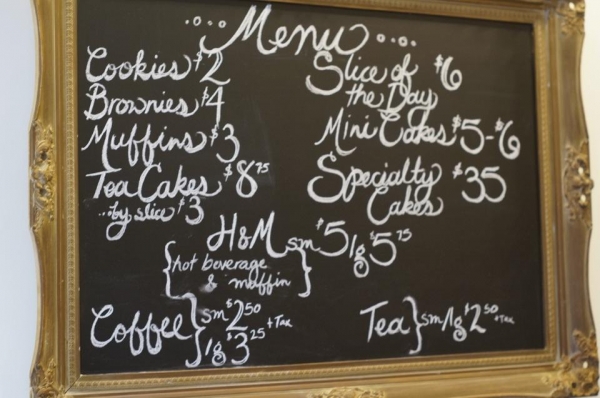 Menu
Cookies $2
Brownies $4
Muffins $3
Tea Cakes $8 75
...by slice $3
Slice of the Day $6
Mini Cakes $5-$6
Specialty Cakes $35
H&M sm $5 lg $5 75
{hot beverage & muffin}
Coffee} sm $2 50
lg $3 25 + Tax
Tea} sm/lg $2 50 + Tax